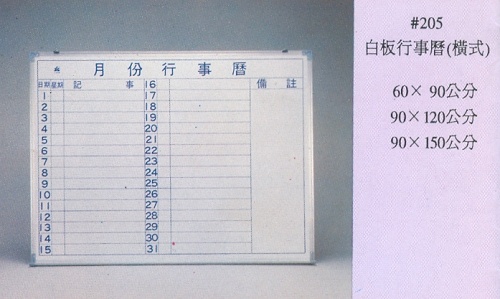 月份行事曆
日期 星期 記事 16 備註
1 17
2 18
3 19
4 20
5 21
6 22
7 23
8 24
9 25
10 26
11 27
12 28
13 29
14 30
15 31
#205
白板行事曆(橫式)
60× 90公分
90×120公分
90×150公分